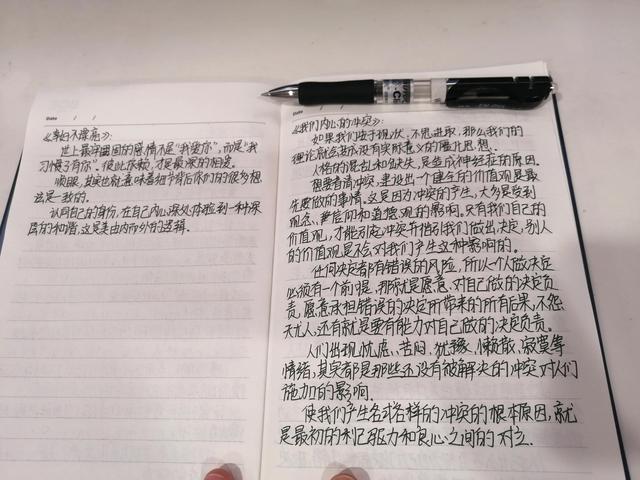 Date / /
《李白不漂亮》:
世上最牢固的感情不是“我爱你”,而是“我
习惯了有你”。彼此依赖,才是最深的相爱。
顺眼,其实也就意味着细节背后你们的很多想
法是一致的。
认同自己的身份,在自己内心深处体验到一种深
厚的和谐,这是美由内而外的逻辑。
Date / /
《我们内心的冲突》:
如果我们安于现状、不思进取,那么我们的
理论就会成为没有实际意义的腐朽思想。
人格的混乱和缺失,是造成神经症的原因。
想要看清冲突,建设出一个健全的价值观是最
先要做的事情。这是因为冲突的产生,大多是受到
观念、信仰和道德观的影响。只有我们自己的
价值观,才能引起冲突并指引我们做出决定,别人
的价值观是不会对我们产生这种影响的。
任何决定都有错误的风险,所以一个人做决定
必须有一个前提,那就是愿意对自己做的决定负
责,愿意承担错误的决定所带来的所有后果,不怨
天尤人,还有就是要有能力对自己做的决定负责。
人们出现忧虑、苦闷、犹豫、懒散、寂寞等
情绪,其实都是那些还没有被解决的冲突对人们
施加的影响。
使我们产生各式各样的冲突的根本原因,就
是最初的利己主力和良心之间的对立。